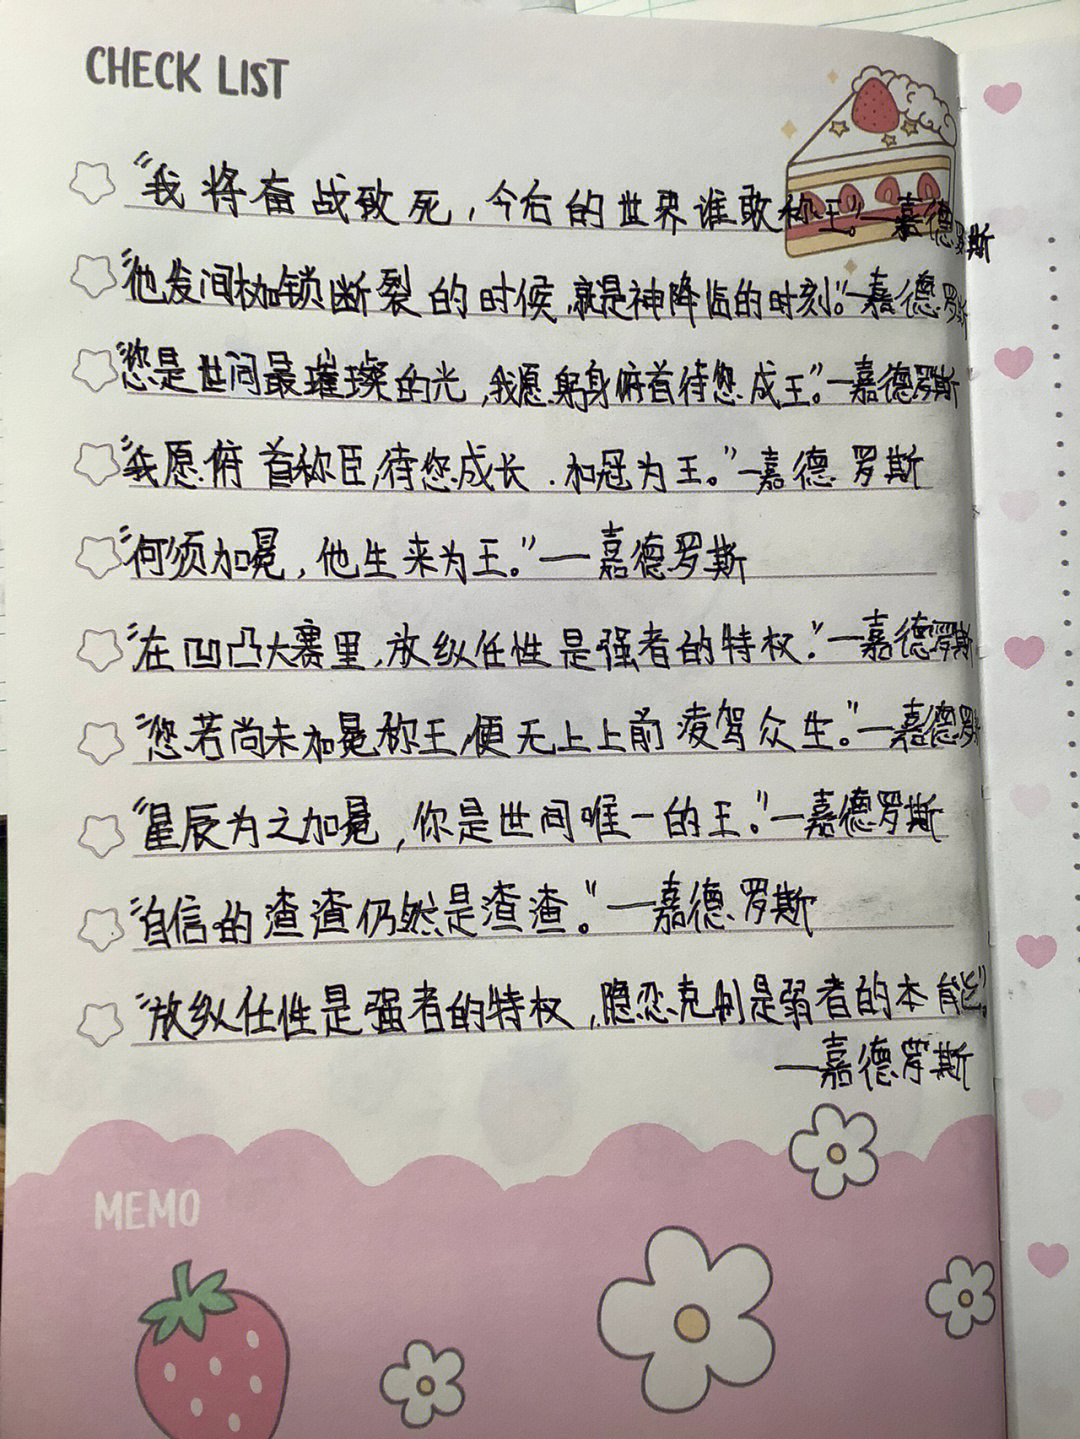 CHECK LIST
“我将奋战致死，今后的世界谁敢称王。”—嘉德罗斯
“他发间枷锁断裂的时候，就是神降临的时刻。”—嘉德罗斯
“您是世间最璀璨的光，我愿躬身俯首待您成王。”—嘉德罗斯
“我愿俯首称臣，待您成长，加冠为王。”—嘉德罗斯
“何须加冕，他生来为王。”—嘉德罗斯
“在凹凸大赛里，放纵任性是强者的特权。”—嘉德罗斯
“您若尚未加冕称王，便无上上前凌驾众生。”—嘉德罗斯
“星辰为之加冕，你是世间唯一的王。”—嘉德罗斯
“自信的渣渣仍然是渣渣。”—嘉德罗斯
“放纵任性是强者的特权，隐忍克制是弱者的本能。”
—嘉德罗斯
MEMO